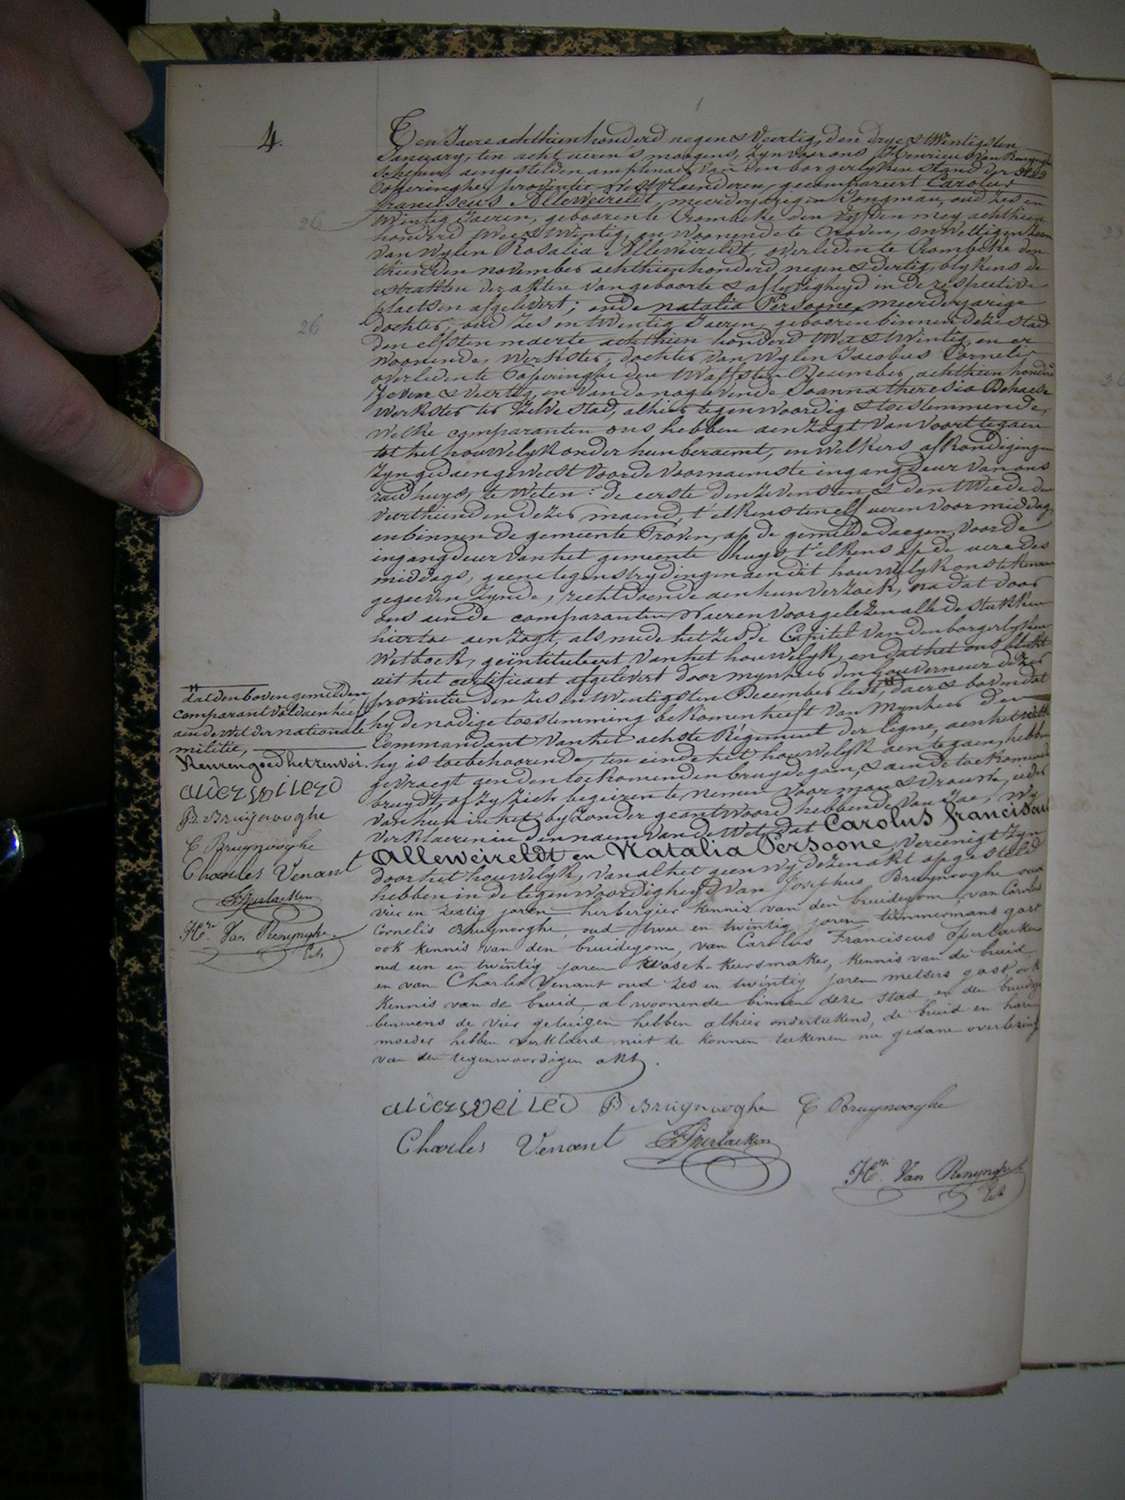 4.
Ten Jaere achthien honderd negen & Veertig, den drye & Twintigsten
January, ten acht ueren 's morgens, zyn voor ons Henricus Van Renynghe
Schepen, aengestelden amptenaer van den borgerlyken stand der stad
Poperinghe, provintie West Vlaenderen, gecompareert Carolus
franciscus Alleweireldt, meerderjarigen Jongman, oud Zes en
26
Twintig Jaeren, gebooren te Crombeke den Vyfden mey achthien
honderd Twee & Twintig, en Woonende te Proven, onwettigen Zoon
van Wylen Rosalia Alleweireldt, overleden te Crombeke den
thienden november achthien honderd negen & dertig, blykens de
extrakten der akten van geboorte & aflyvigheyd in de respective
plaetsen afgelevert; ende natalia Persoone, meerderjarige
26
dochter, oud Zes en Twintig Jaeren, gebooren binnen deze stad
den elfsten maerte achthien honderd Twee & Twintig, en er
woonende, Werkster, dochter van Wylen Jacobus Cornelis
overleden te Poperinghe den Twaelfsten December achthien honderd
Zeven & Veertig, en van de nog levende Joanna theresia Behaege
Werkster ter Zelve stad, alhier tegenwoordig & toestemmende,
Welke comparanten ons hebben aenzogt van voort te gaen
tot het houwelyk onder hun beraemt, en Welkers afkondigingen
zyn gedaen geweest Voor de Voornaemste ingangdeur van ons
raedhuys, te Weten: de eerste den Zevensten & den Tweede den
Veerthienden dezer maend, t'elkens ten elf ueren voormiddag
en binnen de gemeente Proven, op de gemelde daegen, Voor de
ingangdeur van het gemeente huys, t'elkens op de uere des
middags, geene tegenstrydingen aen dit houwelyk ons te kennen
gegeven Zynde, recht doende aen hun Verzoek, na dat door
ons aen de comparanten Waeren voorgelezen alle de stukken
hiertoe aenzogt, als mede het zesde Capitel Van den borgerlyken
Wetboek, geïntituleert Van het houwelyk, en dat het ons blykt
uit het certificaet afgelevert door mynheer den gouverneur dezer
provintie den Zes en Twintigsten December lest, daer & boven dat
hy de nodige toestemming bekomen heeft van Mynheer den
Commandant Van het achste Régiment der ligne, aen het welk
hy is toebehoorende, ten einde het houwelyk aen te gaen, hebben
gevraegt aen den toekomenden bruydegom, & aen de toekomende
bruydt, of Zy Zich begeiren te nemen Voor man & Vrouw, ieder
van hun in het byzonder geantwoord hebbende van Jae, Wy
Verklaeren in den naem van de Wet, dat Carolus franciscus
Alleweireldt en Natalia Persoone, Vereenigt Zyn
door het houwelyk, van al het geen Wy deze akt opgesteld
hebben in de tegenwoordigheyd Van Josephus Bruynooghe oud
vier en zestig jaren herbergier kennis van den bruidegom, van
Cornelis Bruynooghe, oud twee en twintig jaren timmermans gast
ook kennis van den bruidegom, van Carolus Franciscus Sperlaeken
oud een en twintig jaren wasch-keersmaker, kennis van de bruid
en van Charles Venant oud zes en twintig jaren metsers gast ook
kennis van de bruid al woonende binnen deze stad en den bruidegom
benevens de vier getuigen hebben alhier onderteekend, de bruid en hare
moeder hebben verklderd niet te konnen teekenen na gedane voorlezing
van den tegenwoordigen akt.
dat den bovengemelden
comparant voldaen heeft
aen de Wet der nationale
militie,
Renvoi goedhetrenvoi.
alderweireld
B Bruynooghe
C Bruynooghe
Charles Venant
F Sperlaeken
Hri. Van Renynghe
alderweireld B Bruynooghe C Bruynooghe
Charles Venant F Sperlaeken
Hri. Van Renynghe